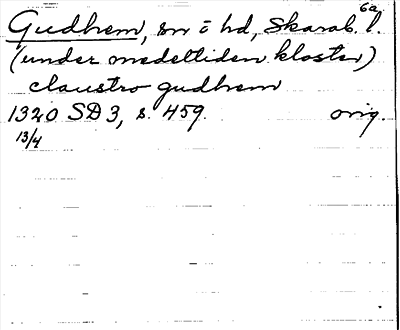 6a
Gudhem, sn o hd, Skarab. l.
(under medeltiden kloster)
claustro gudhem
1320 SD 3, s. 459. orig.
13/4